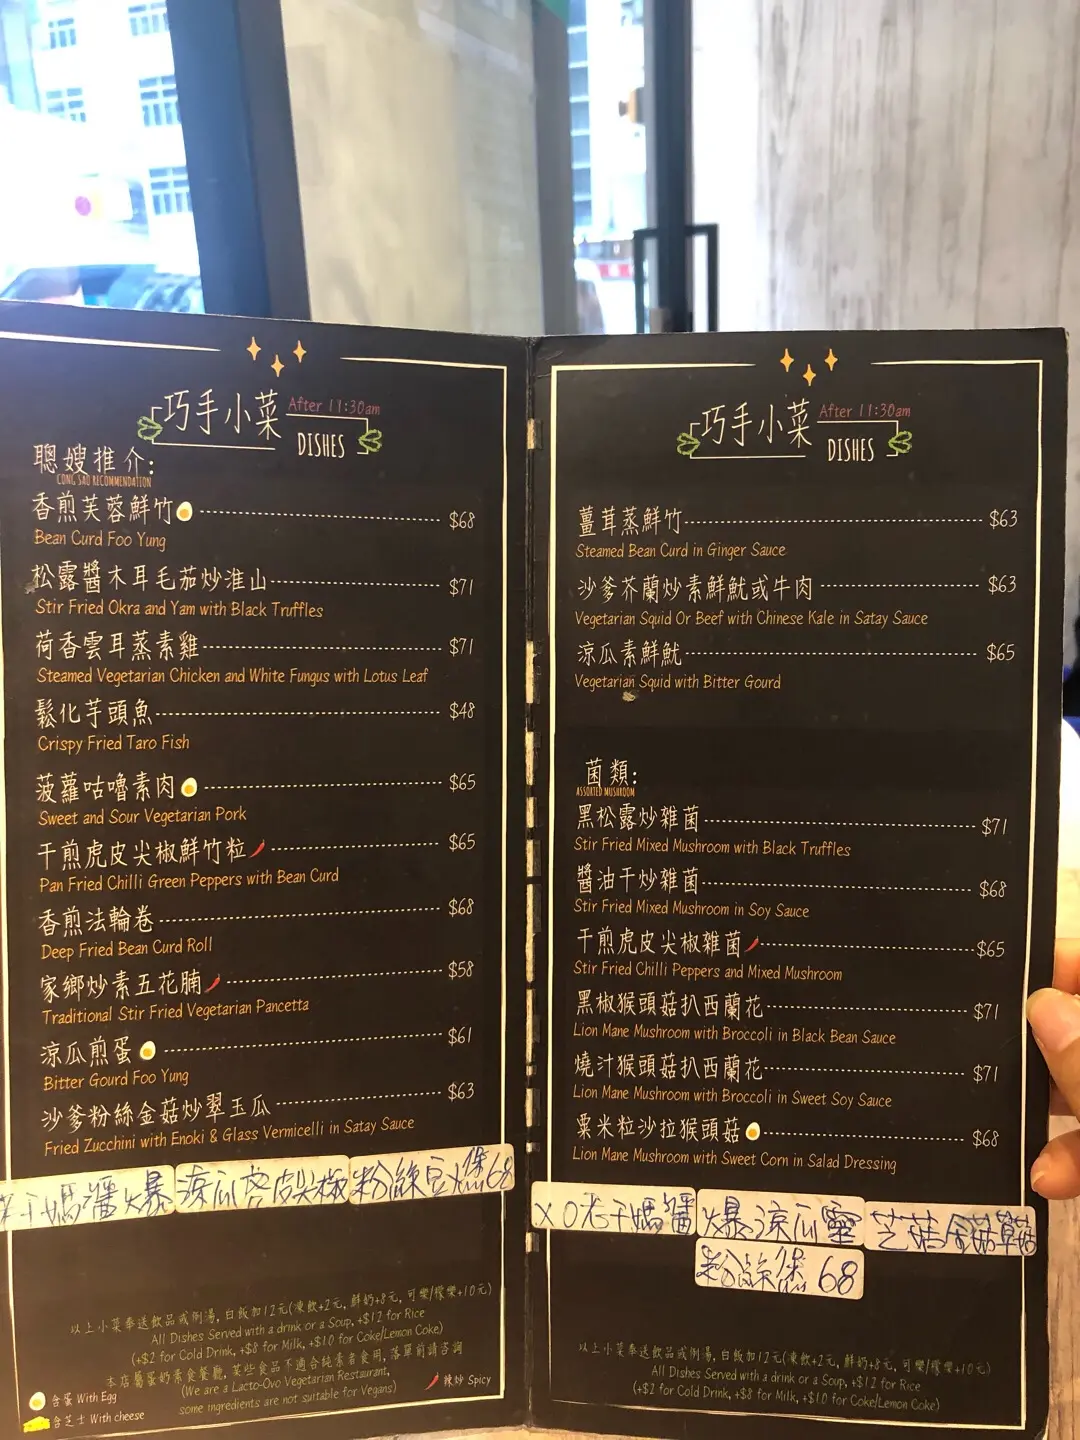 巧手小菜 After 11:30am
DISHES
聰嫂推介:
CONG SAO RECOMMENDATION
香煎芙蓉鮮竹 $68
Bean Curd Foo Yung
松露醬木耳毛茄炒淮山 $71
Stir Fried Okra and Yam with Black Truffles
荷香雲耳蒸素雞 $71
Steamed Vegetarian Chicken and White Fungus with Lotus Leaf
鬆化芋頭魚 $48
Crispy Fried Taro Fish
菠蘿咕嚕素肉 $65
Sweet and Sour Vegetarian Pork
干煎虎皮尖椒鮮竹粒 $65
Pan Fried Chilli Green Peppers with Bean Curd
香煎法輪卷 $68
Deep Fried Bean Curd Roll
家鄉炒素五花腩 $58
Traditional Stir Fried Vegetarian Pancetta
涼瓜煎蛋 $61
Bitter Gourd Foo Yung
沙爹粉絲金菇炒翠玉瓜 $63
Fried Zucchini with Enoki & Glass Vermicelli in Satay Sauce
干媽醬爆涼瓜虎皮尖椒粉絲豆煲68
以上小菜奉送飲品或例湯, 白飯加12元(凍飲+2元, 鮮奶+8元, 可樂/檸樂+10元)
All Dishes Served with a drink or a Soup, +$12 for Rice
(+$2 for Cold Drink, +$8 for Milk, +$10 for Coke/Lemon Coke)
本店屬蛋奶素食餐廳, 某些食品不適合純素者食用, 落單前請咨詢
(We are a Lacto-Ovo Vegetarian Restaurant,
some ingredients are not suitable for Vegans)
含蛋 With Egg
含芝士 With cheese
辣炒 Spicy
巧手小菜 After 11:30am
DISHES
薑茸蒸鮮竹 $63
Steamed Bean Curd in Ginger Sauce
沙爹芥蘭炒素鮮魷或牛肉 $63
Vegetarian Squid Or Beef with Chinese Kale in Satay Sauce
涼瓜素鮮魷 $65
Vegetarian Squid with Bitter Gourd
菌類:
ASSORTED MUSHROOM
黑松露炒雜菌 $71
Stir Fried Mixed Mushroom with Black Truffles
醬油干炒雜菌 $68
Stir Fried Mixed Mushroom in Soy Sauce
干煎虎皮尖椒雜菌 $65
Stir Fried Chilli Peppers and Mixed Mushroom
黑椒猴頭菇扒西蘭花 $71
Lion Mane Mushroom with Broccoli in Black Bean Sauce
燒汁猴頭菇扒西蘭花 $71
Lion Mane Mushroom with Broccoli in Sweet Soy Sauce
粟米粒沙拉猴頭菇 $68
Lion Mane Mushroom with Sweet Corn in Salad Dressing
XO老干媽醬爆涼瓜靈芝菇金菇草菇
粉絲煲 68
以上小菜奉送飲品或例湯, 白飯加12元(凍飲+2元, 鮮奶+8元, 可樂/檸樂+10元)
All Dishes Served with a drink or a Soup, +$12 for Rice
(+$2 for Cold Drink, +$8 for Milk, +$10 for Coke/Lemon Coke)